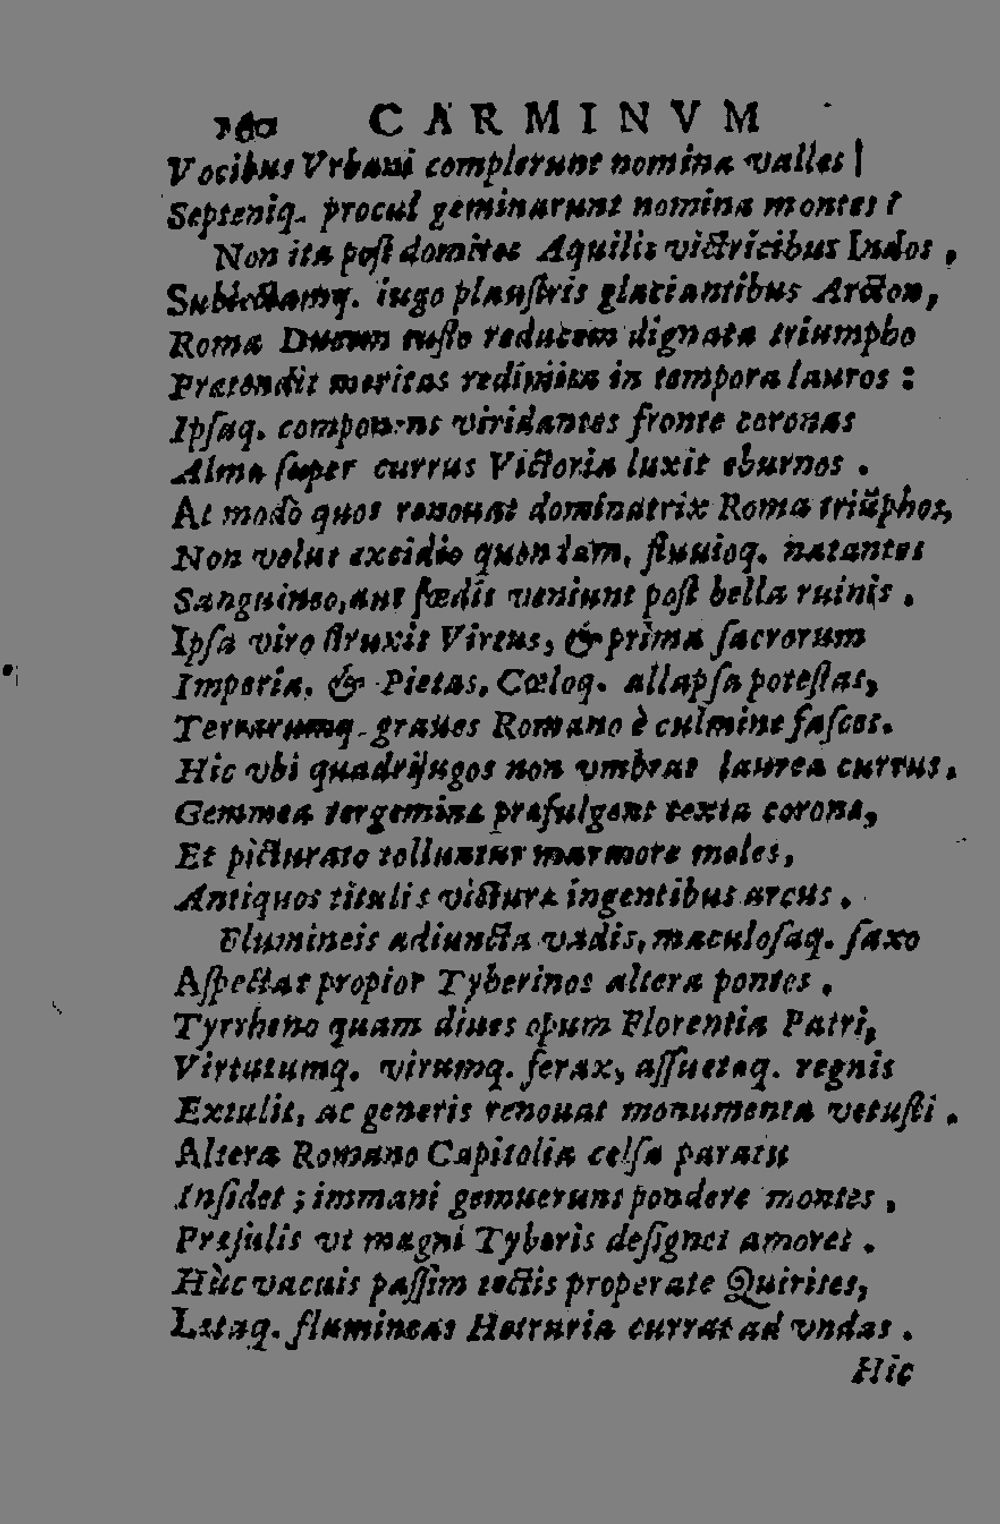 160 CARMINVM
Vocibus Vrbani complerunt nomina valles!
Septeniq. procul geminarunt nomina montes?
Non ita post domitos Aquilis victricibus Indos,
Subiectamq. iugo plaustris glaciantibus Arcton,
Roma Ducem iusto reducem dignata triumpho
Prætendit meritas redimita in tempora lauros:
Ipsaq. componens viridantes fronte coronas
Alma super currus Victoria luxit eburnos.
At modò quos renouat dominatrix Roma triũphos,
Non velut excidio quondam, fluuioq. natantes
Sanguineo, aut fœdis veniunt post bella ruinis.
Ipsa viro struxit Virtus, & prima sacrorum
Imperia, & Pietas, Cœloq. allapsa potestas,
Terrarumq. graues Romano è culmine fasces.
Hic vbi quadrijugos non vmbrat laurea currus,
Gemmea tergemina præfulgent texta corona,
Et picturato tolluntur marmore moles,
Antiquos titulis victuræ ingentibus arcus.
Flumineis adiuncta vadis, maculosaq. saxo
Aspectat propior Tyberinos altera pontes.
Tyrrheno quam diues opum Florentia Patri,
Virtutumq. virumq. ferax, assuetaq. regnis
Extulit, ac generis renouat monumenta vetusti.
Altera Romano Capitolia celsa paratu
Insidet; immani gemuerunt pondere montes,
Præsulis vt magni Tyberis designet amores.
Hùc vacuis passim tectis properate Quirites,
Lætaq. flumineas Hetruria currat ad vndas.
Hic